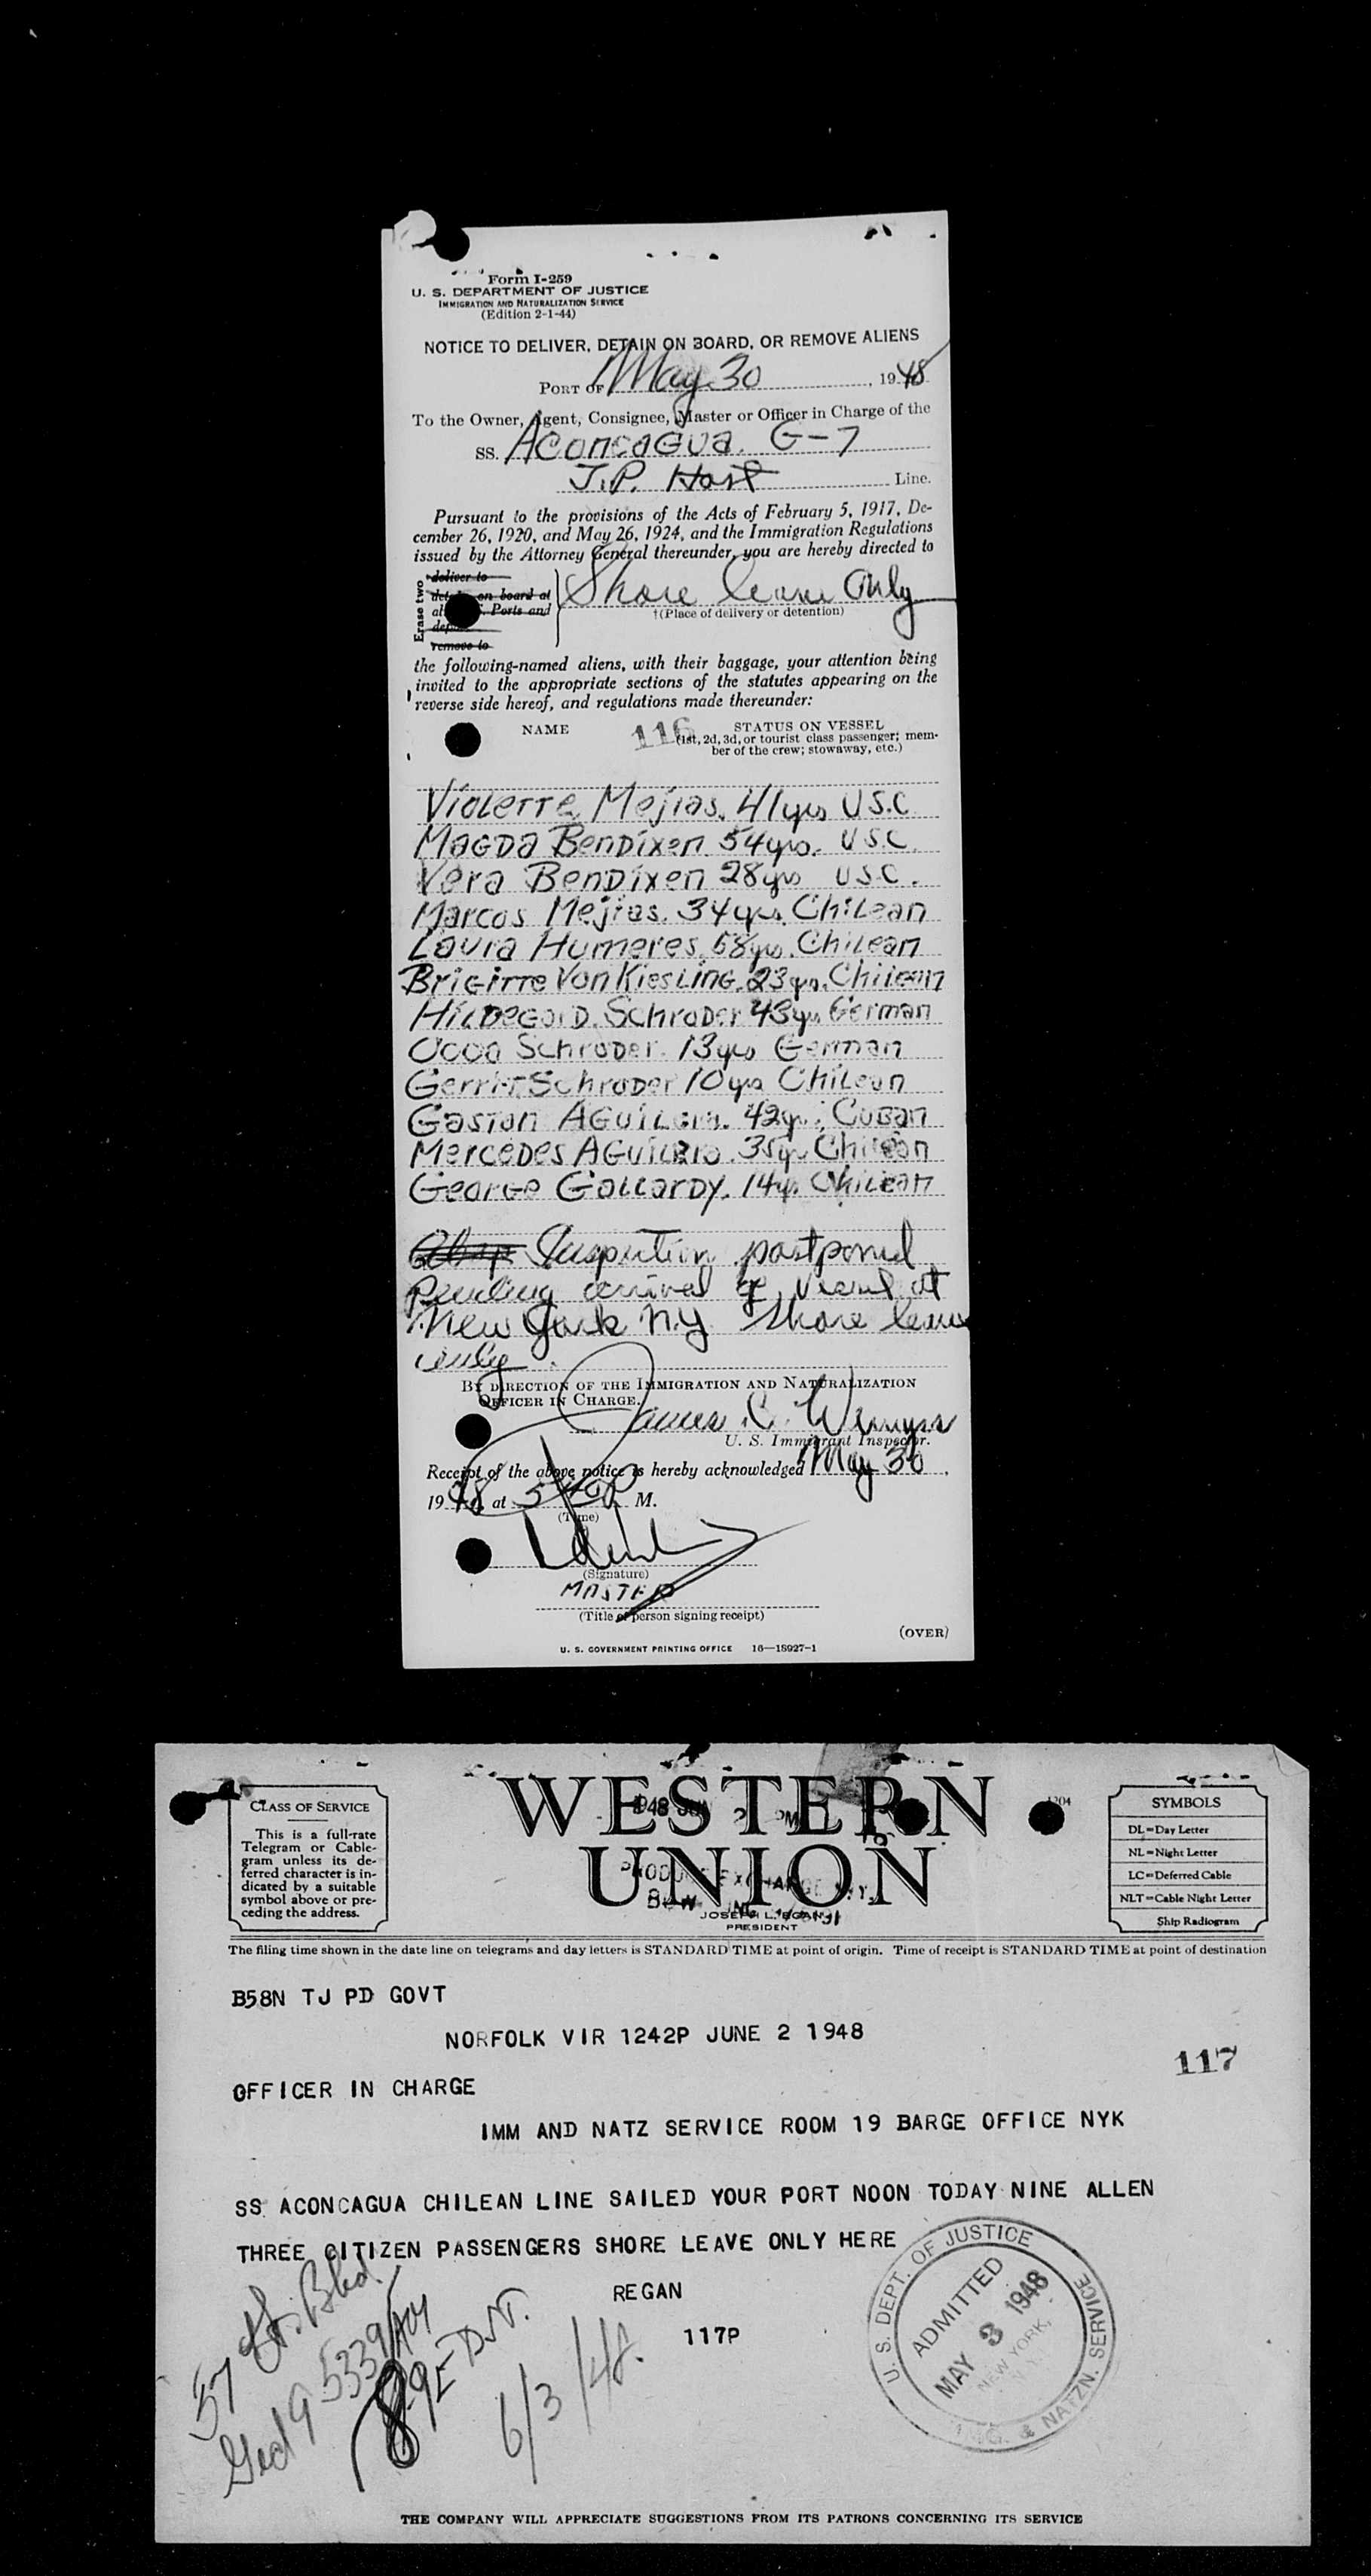 Form I-259
U. S. DEPARTMENT OF JUSTICE
IMMIGRATION AND NATURALIZATION SERVICE
(Edition 2-1-44)
NOTICE TO DELIVER, DETAIN ON BOARD, OR REMOVE ALIENS
PORT OF May 30, 1948
To the Owner, Agent, Consignee, Master or Officer in Charge of the
SS. Aconcagua. G-7
J.P. Line.
Pursuant to the provisions of the Acts of February 5, 1917, De-
cember 26, 1920, and May 26, 1924, and the Immigration Regulations
issued by the Attorney General thereunder, you are hereby directed to
Erase two
deliver to
on board at
Ports and
remove to
Shore leave Only
†(Place of delivery or detention)
the following-named aliens, with their baggage, your attention being
invited to the appropriate sections of the statutes appearing on the
reverse side hereof, and regulations made thereunder:
NAME 116 STATUS ON VESSEL
(1st, 2d, 3d, or tourist class passenger; mem-
ber of the crew; stowaway, etc.)
Violette Mejias. 41yrs USC
Magda Bendixen 54yrs. USC
Vera Bendixen 28yrs USC.
Marcos Mejias. 34yrs. Chilean
Laura Humeres. 58yrs. Chilean
Brigitte Von Kiesling. 23yrs. Chilean
Hildegard. Schroder 43yrs German
Schroder. 13yrs German
Gerrit Schroder 10yrs Chilean
Gaston Aguilera. 42yrs; Cuban
Mercedes Aguilera. 35yrs Chilean
George Gallardy. 14yrs. Chilean
Inspection postponed
pending arrival of vessel at
New York N.Y Shore leave
only.
BY DIRECTION OF THE IMMIGRATION AND NATURALIZATION
OFFICER IN CHARGE.
James C. Wemyss
U. S. Immigrant Inspector.
Receipt of the above notice is hereby acknowledged May 30,
1948, at P. M.
(Time)
(Signature)
MASTER
(Title of person signing receipt)
(OVER)
U. S. GOVERNMENT PRINTING OFFICE 16—18927-1
WESTERN
UNION
1204
CLASS OF SERVICE
This is a full-rate
Telegram or Cable-
gram unless its de-
ferred character is in-
dicated by a suitable
symbol above or pre-
ceding the address.
JOSEPH L. EGAN
PRESIDENT
SYMBOLS
DL=Day Letter
NL=Night Letter
LC=Deferred Cable
NLT=Cable Night Letter
Ship Radiogram
The filing time shown in the date line on telegrams and day letters is STANDARD TIME at point of origin. Time of receipt is STANDARD TIME at point of destination
B58N TJ PD GOVT
NORFOLK VIR 1242P JUNE 2 1948
117
OFFICER IN CHARGE
IMM AND NATZ SERVICE ROOM 19 BARGE OFFICE NYK
SS ACONCAGUA CHILEAN LINE SAILED YOUR PORT NOON TODAY NINE ALLEN
THREE CITIZEN PASSENGERS SHORE LEAVE ONLY HERE
REGAN
117P
U. S. DEPT. OF JUSTICE
ADMITTED
MAY 3 1948
NEW YORK,
& NATZN. SERVICE
57
6/3/48.
THE COMPANY WILL APPRECIATE SUGGESTIONS FROM ITS PATRONS CONCERNING ITS SERVICE